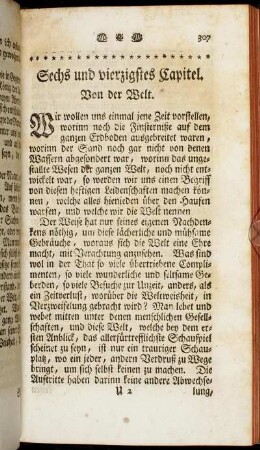 307
Sechs und vierzigstes Capitel.
Von der Welt.
Wir wollen uns einmal jene Zeit vorstellen,
worinn noch die Finsterniße auf dem
ganzen Erdboden ausgebreitet waren,
worinn der Sand noch gar nicht von denen
Wassern abgesondert war, worinn das unge-
stalte Wesen der ganzen Welt, noch nicht ent-
wickelt war, so werden wir uns einen Begriff
von diesen heftigen Leidenschaften machen kön-
nen, welche alles hienieden über den Haufen
warfen, und welche wir die Welt nennen
Der Weise hat nur seines eigenen Nachden-
kens nöthig, um diese lächerliche und mühsame
Gebräuche, woraus sich die Welt eine Ehre
macht, mit Verachtung anzusehen. Was sind
wol in der That so viele übertriebene Compli-
menten, so viele wunderliche und seltsame Ge-
berden, so viele Besuche zur Unzeit, anders, als
ein Zeitverlust, worüber die Weltweisheit, in
Verzweifelung gebracht wird? Man lebet und
webet mitten unter denen menschlichen Gesell-
schaften, und diese Welt, welche bey dem er-
sten Anblick, das allerfürtrefflichste Schauspiel
scheinet zu seyn, ist nur ein trauriger Schau-
platz, wo ein jeder, andern Verdruß zu Wege
bringt, um sich selbst keinen zu machen. Die
Auftritte haben darinn keine andere Abwechse-
U 2 lung,